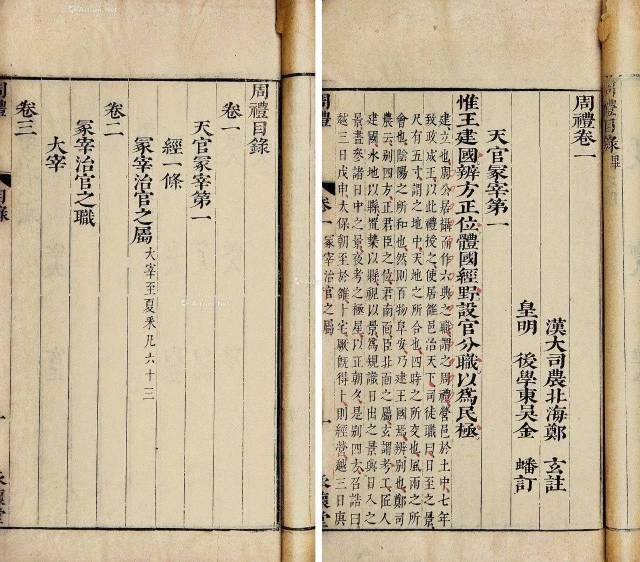 周禮目錄
卷一
天官冢宰第一
經一條
冢宰治官之屬 大宰至夏采凡六十三
卷二
冢宰治官之職
大宰
卷三
周禮 目錄 一 永懷堂
周禮目錄 畢
周禮卷一
漢大司農北海鄭 玄註
皇明 後學東吳金 蟠訂
天官冢宰第一
惟王建國辨方正位體國經野設官分職以爲民極
建立也周公居攝而作六典之職謂之周禮營邑於土中七年
致政成王以此禮授之使居雒邑治天下司徒職曰日至之景
尺有五寸謂之地中天地之所合也四時之所交也風雨之所
會也陰陽之所和也然則百物阜安乃建王國焉辨別也鄭司
農云別四方正君臣之位君南面臣北面之屬玄謂考工匠人
建國水地以縣置槷以縣視以景爲規識日出之景與日入之
景晝參諸日中之景夜考之極星以正朝夕是別四方召誥曰
越三日戊申太保朝至於雒卜宅厥既得卜則經營越三日庚
周禮 卷一 冢宰治官之屬 一 永懷堂